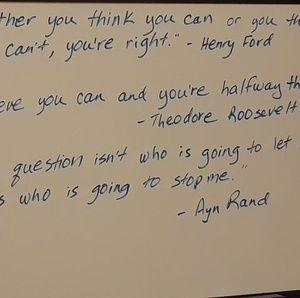 ther you think you can or you th
can't, you're right." - Henry Ford
eve you can and you're halfway th
- Theodore Roosevelt
question isn't who is going to let
s who is going to stop me."
- Ayn Rand